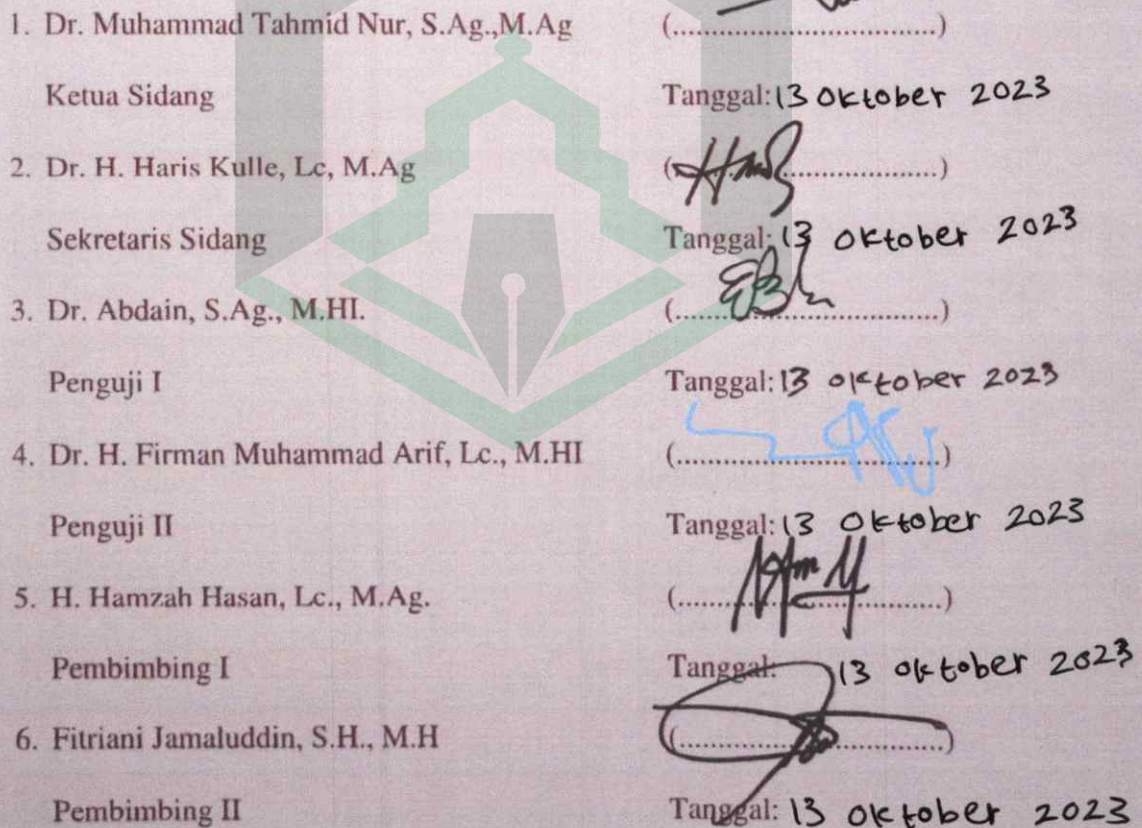 1. Dr. Muhammad Tahmid Nur, S.Ag.,M.Ag (..................................)
Ketua Sidang Tanggal: 13 Oktober 2023
2. Dr. H. Haris Kulle, Lc, M.Ag (..................................)
Sekretaris Sidang Tanggal: 13 Oktober 2023
3. Dr. Abdain, S.Ag., M.HI. (..................................)
Penguji I Tanggal: 13 Oktober 2023
4. Dr. H. Firman Muhammad Arif, Lc., M.HI (..................................)
Penguji II Tanggal: 13 Oktober 2023
5. H. Hamzah Hasan, Lc., M.Ag. (..................................)
Pembimbing I Tanggal: 13 Oktober 2023
6. Fitriani Jamaluddin, S.H., M.H (..................................)
Pembimbing II Tanggal: 13 Oktober 2023